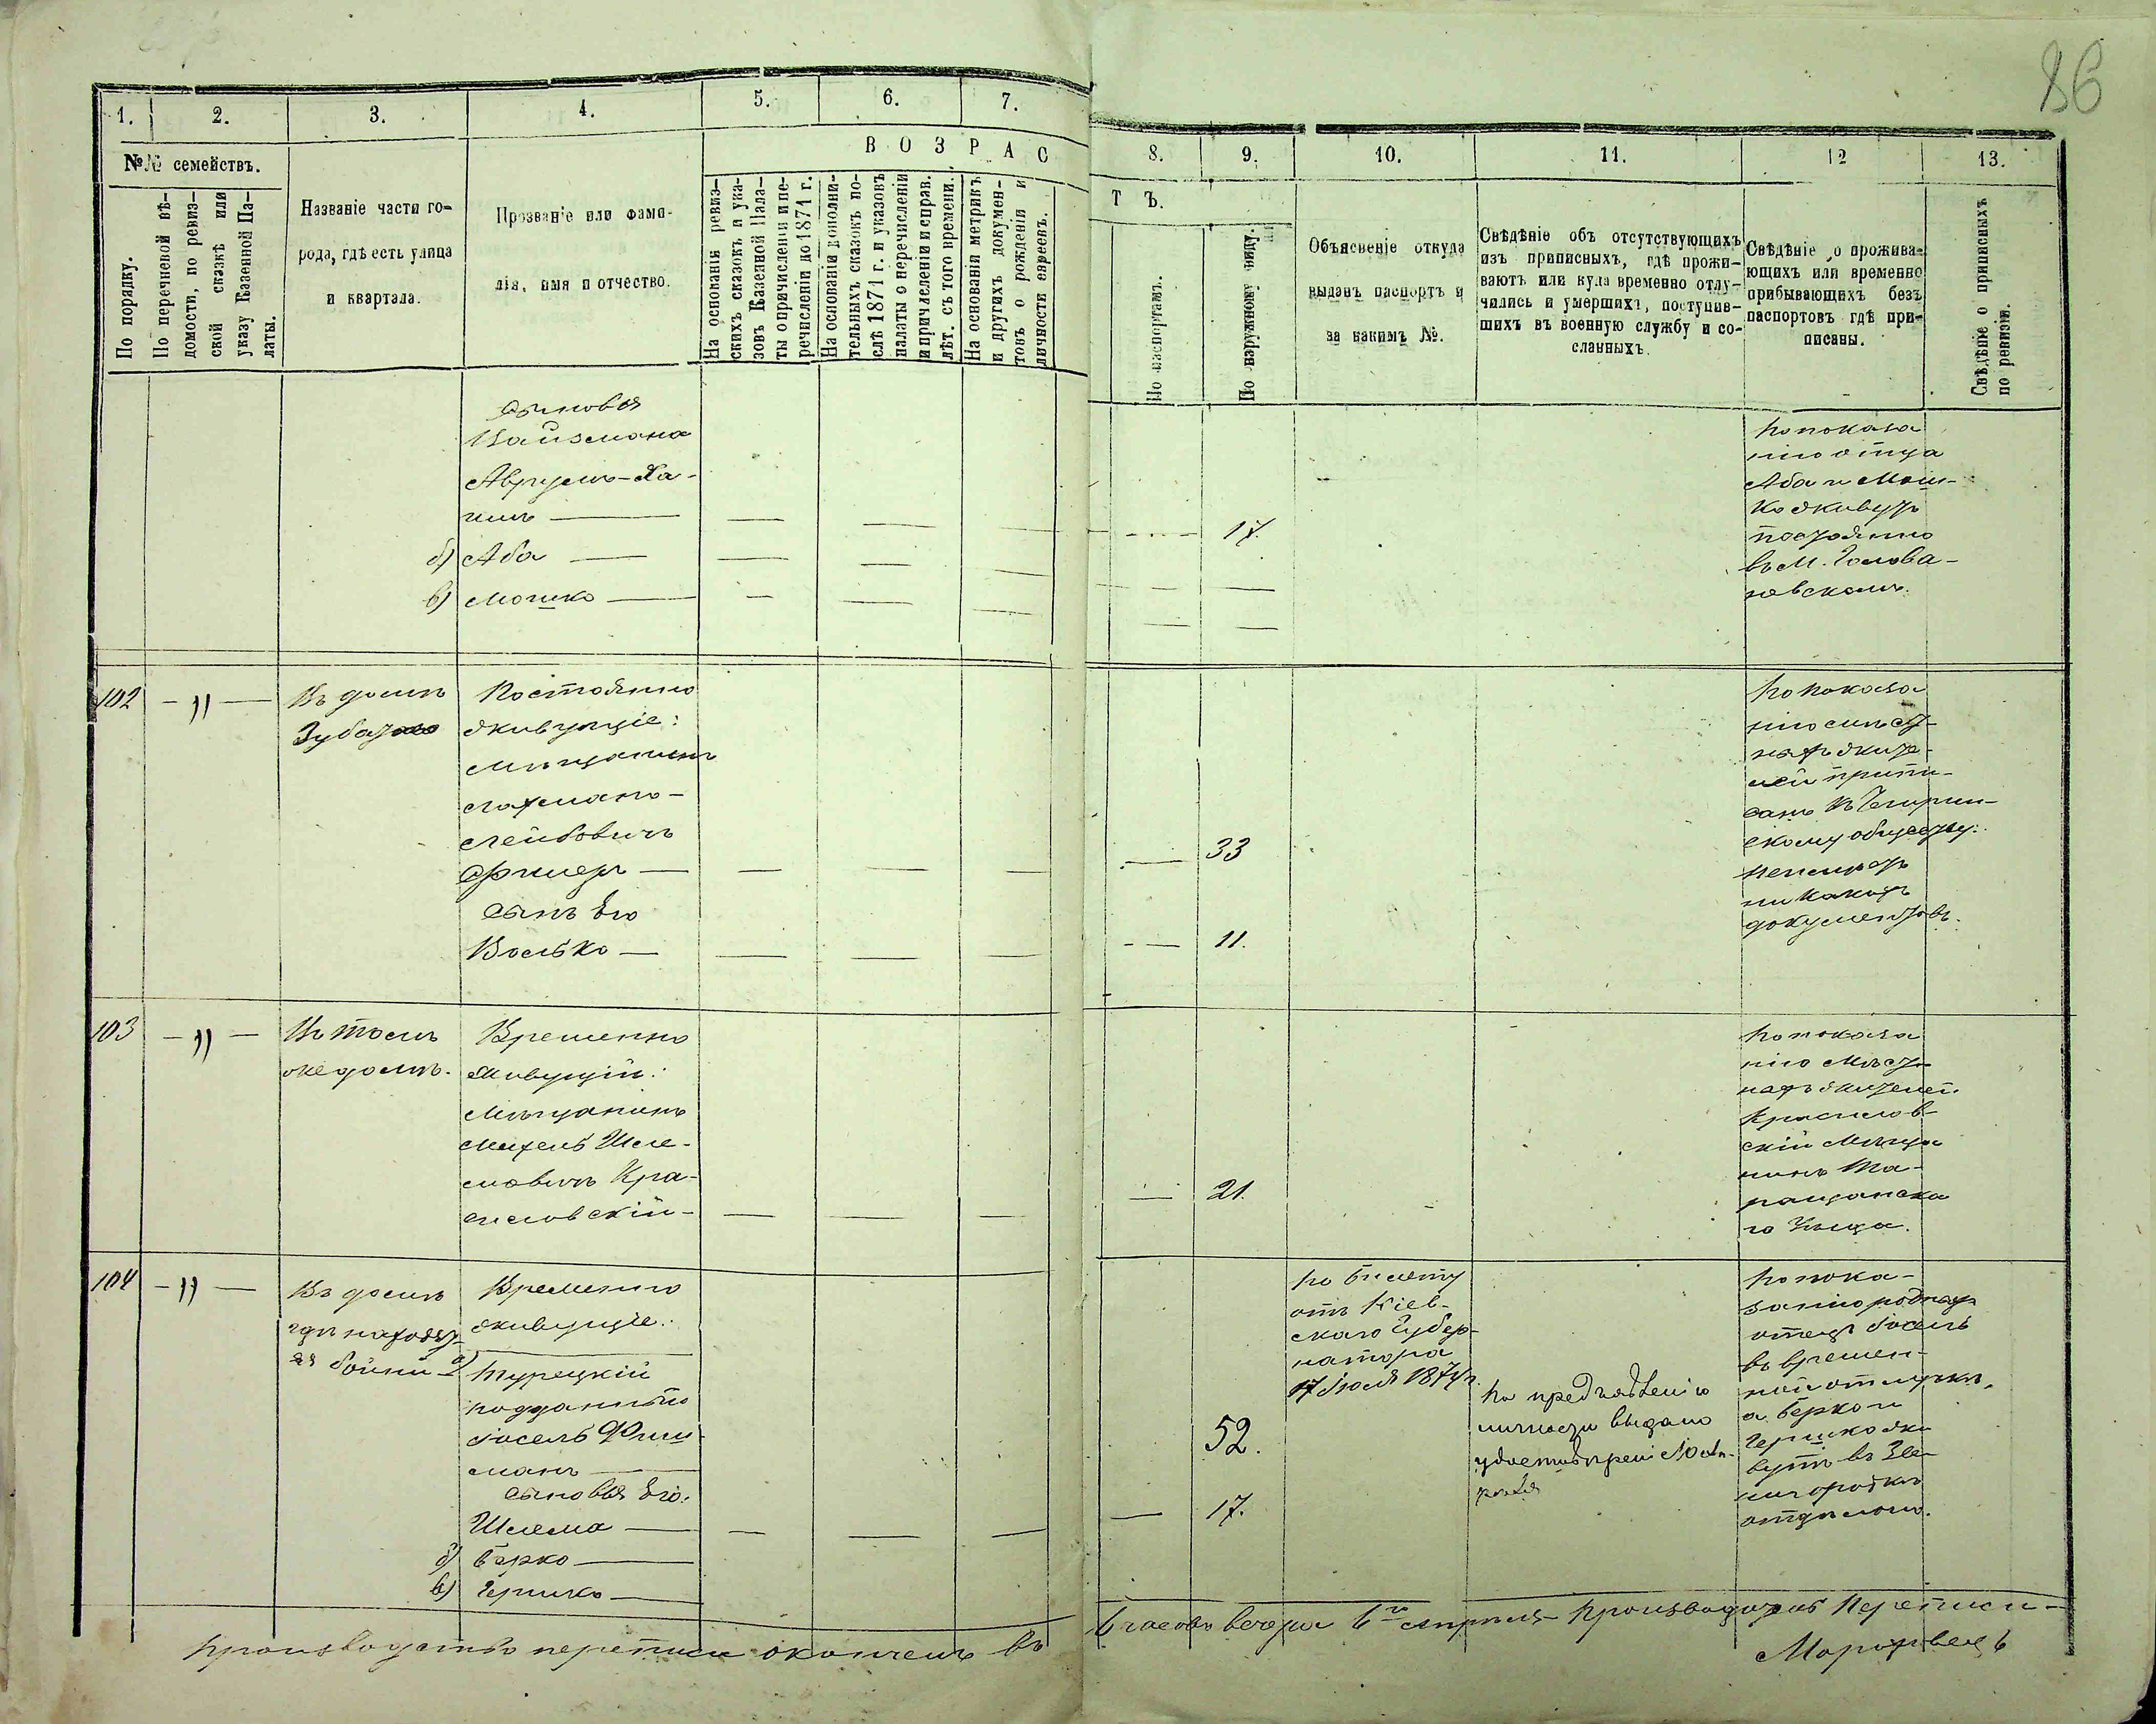 86
1.
2.
3.
4.
5.
6.
7.
8.
9.
10.
11.
12
13.
№№ семействъ.
По порядку.
По перечневой вѣ-
домости, по ревиз-
ской сказкѣ или
указу Казенной Па-
латы.
Названіе части го-
рода, гдѣ есть улица
и квартала.
Прозваніе или фами-
лія, имя и отчество.
ВОЗРАС
На основаніи ревиз-
скихъ сказокъ и ука-
зовъ Казенной Пала-
ты о причисленіи и пе-
речисленіи до 1871 г.
На основаніи дополни-
тельныхъ сказокъ по-
слѣ 1871 г. и указовъ
палаты о перечисленіи
и причисленіи и справ.
лѣт. съ того времени.
На основаніи метрикъ
и другихъ докумен-
товъ о рожденіи и
личности евреевъ.
ТЪ.
По паспортамъ.
По наружному виду.
Объясненіе откуда
выданъ паспортъ и
за какимъ №.
Свѣдѣніе объ отсутствующихъ
изъ приписныхъ, гдѣ прожи-
ваютъ или куда временно отлу-
чились и умершихъ, поступив-
шихъ въ военную службу и со-
сланныхъ.
Свѣдѣніе о прожива-
ющихъ или временно
прибывающихъ безъ
паспортовъ гдѣ при-
писаны.
Свѣдѣніе о приписныхъ
по ревизіи.
Сыновья
Вайзмана
Аврумъ-Ха-
имъ —
б) Аба —
в) Мошко —
17.
По показа
нію отца
Аба и Мош-
ко живутъ
постоянно
въ М. Голова-
невскомъ.
102
— " —
Въ домѣ
Постоянно
живущіе:
Мѣщанинъ
Лейбовичъ
сынъ Его
Волько —
33
11.
По показа
нію мѣст-
ныхъ жите-
лей припи-
санъ къ Чигирин-
скому обществу.
неимѣетъ
никакихъ
документовъ.
103
— " —
Въ томъ
же домѣ.
Временно
Живущій:
Мѣщанинъ
Михель Шле-
мовичъ Кра-
силовскій —
21.
По показа
нію Мѣст-
ныхъ жителей
Красилов-
скій Мѣща
нинъ Та-
ращанска
го Уѣзда.
104
— " —
Въ домѣ
гдѣ находят
ся бойни —
Временно
живущіе:
а) Турецкій
подданный
Іосель Фиш-
манъ —
сыновья Его:
Шлема —
б) Берко —
в) Гершко —
52.
17.
По билету
отъ Кіев-
скаго Губер-
натора
17 Іюля 1874 г.
По предъявленію
личности выдано
По пока-
занію
отецъ Іосель
въ времен-
ной отлучкѣ,
а Берко и
Гершко жи
вутъ въ Зве-
нигородкѣ
отдѣльно.
Производство переписи окончено въ 6 часовъ вечера 6го апрѣля Производитель Переписи —